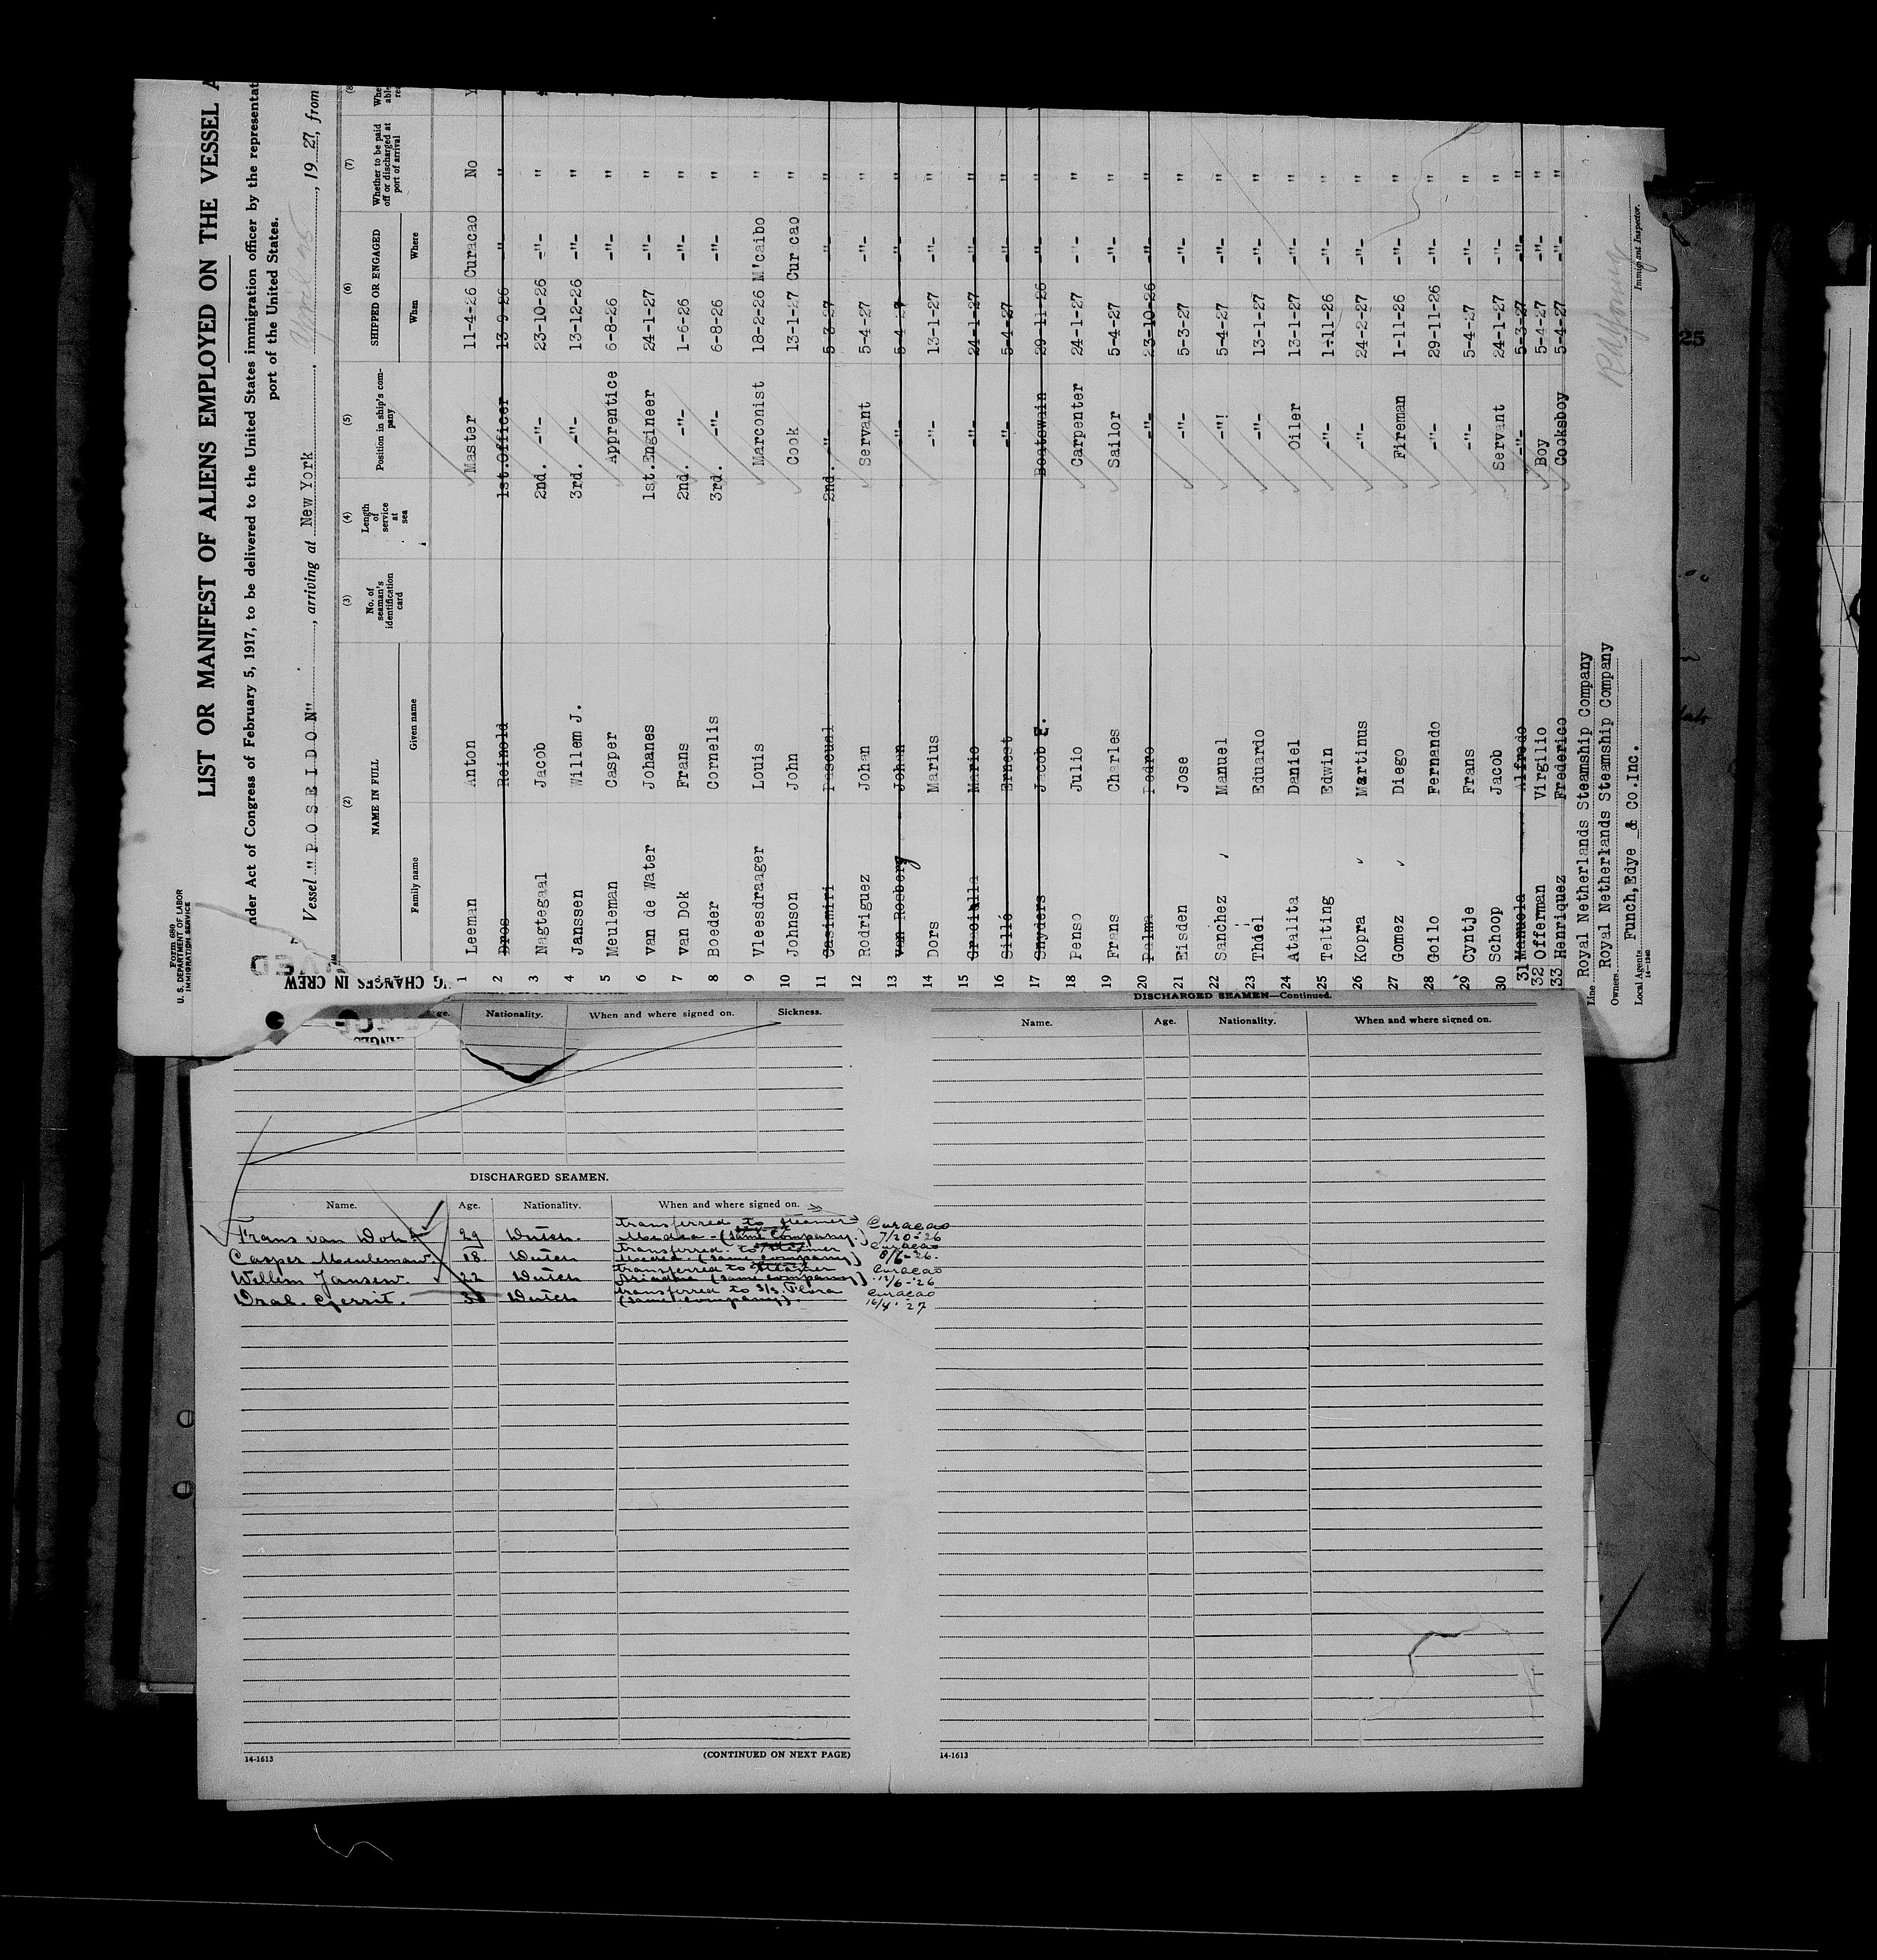 Form 680
U. S. DEPARTMENT OF LABOR
IMMIGRATION SERVICE
LIST OR MANIFEST OF ALIENS EMPLOYED ON THE VESSEL A
nder Act of Congress of February 5, 1917, to be delivered to the United States immigration officer by the representat
port of the United States.
Vessel "POSEIDON", arriving at New York, April 25, 1927, from
(2) (3) (4) (5) (6) (7) (8
NAME IN FULL No. of seaman's identification card Length of service at sea Position in ship's company SHIPPED OR ENGAGED Whether to be paid off or discharged at port of arrival
Family name Given name When Where
1 Leeman Anton Master 11-4-26 Curacao No
2 Dros Reinold 1st.Officer 13-9-26 -"- "
3 Nagtegaal Jacob 2nd. -"- 23-10-26 -"- "
4 Janssen Willem J. 3rd. -"- 13-12-26 -"- "
5 Meuleman Casper Apprentice 6-8-26 -"- "
6 van de Water Johanes 1st.Engineer 24-1-27 -"- "
7 van Dok Frans 2nd. -"- 1-6-26 -"- "
8 Boeder Cornelis 3rd. -"- 6-8-26 -"- "
9 Vleesdraager Louis Marconist 18-2-26 M'caibo "
10 Johnson John Cook 13-1-27 Cur cao "
11 Casimiri Pascual 2nd. -"- 5-3-27 -"- "
12 Rodriguez Johan Servant 5-4-27 -"- "
13 van Rosberg Johan -"- 5-4-7 -"- "
14 Dors Marius -"- 13-1-27 -"- "
15 Graciella Mario -"- 24-1-27 -"- "
16 Sillé Ernest -"- 5-4-27 -"- "
17 Snyders Jacob E. Boatswain 29-11-26 -"- "
18 Penso Julio Carpenter 24-1-27 -"- "
19 Frans Charles Sailor 5-4-27 -"- "
20 Palma Pedro -"- 23-10-26 -"- "
21 Eisden Jose -"- 5-3-27 -"- "
22 Sanchez Manuel -"! 5-4-27 -"- "
23 Thiel Eduardo -"- 13-1-27 -"- "
24 Atalita Daniel Oiler 13-1-27 -"- "
25 Telting Edwin -"- 1-11-26 -"- "
26 Kopra Martinus -"- 24-2-27 -"- "
27 Gomez Diego Fireman 1-11-26 -"- "
28 Goilo Fernando -"- 29-11-26 -"- "
29 Cyntje Frans -"- 5-4-27 -"- "
30 Schoop Jacob Servant 24-1-27 -"- "
31 Manuela Alfredo -"- 5-3-27 -"- "
32 Offerman Virgilio Boy 5-4-27 -"- "
33 Henriquez Frederico Cooksboy 5-4-27 -"- "
Line Royal Netherlands Steamship Company
Owners Royal Netherlands Steamship Company
Local Agents Funch,Edye & Co.Inc.
14-1240
Immigrant Inspector.
NG CHANGES IN CREW
25
ge. Nationality. When and where signed on. Sickness.
DISCHARGED SEAMEN.
Name. Age. Nationality. When and where signed on.
Frans van Dok. 29 Dutch. transferred to steamer Medea - (same company.) Curacao 7/20-26
Casper Meuleman. 18 Dutch transferred to steamer Medea. (same company) Curacao 8/6-26.
Willem Jansen. 22 Dutch transferred to steamer Ariadne (same company) Curacao 12/6-'26
Drab. Gerrit. 38 Dutch transferred to S/S. Flora (same company). Curacao 16/4-'27
14-1613
(CONTINUED ON NEXT PAGE)
DISCHARGED SEAMEN—Continued.
Name. Age. Nationality. When and where signed on.
14-1613